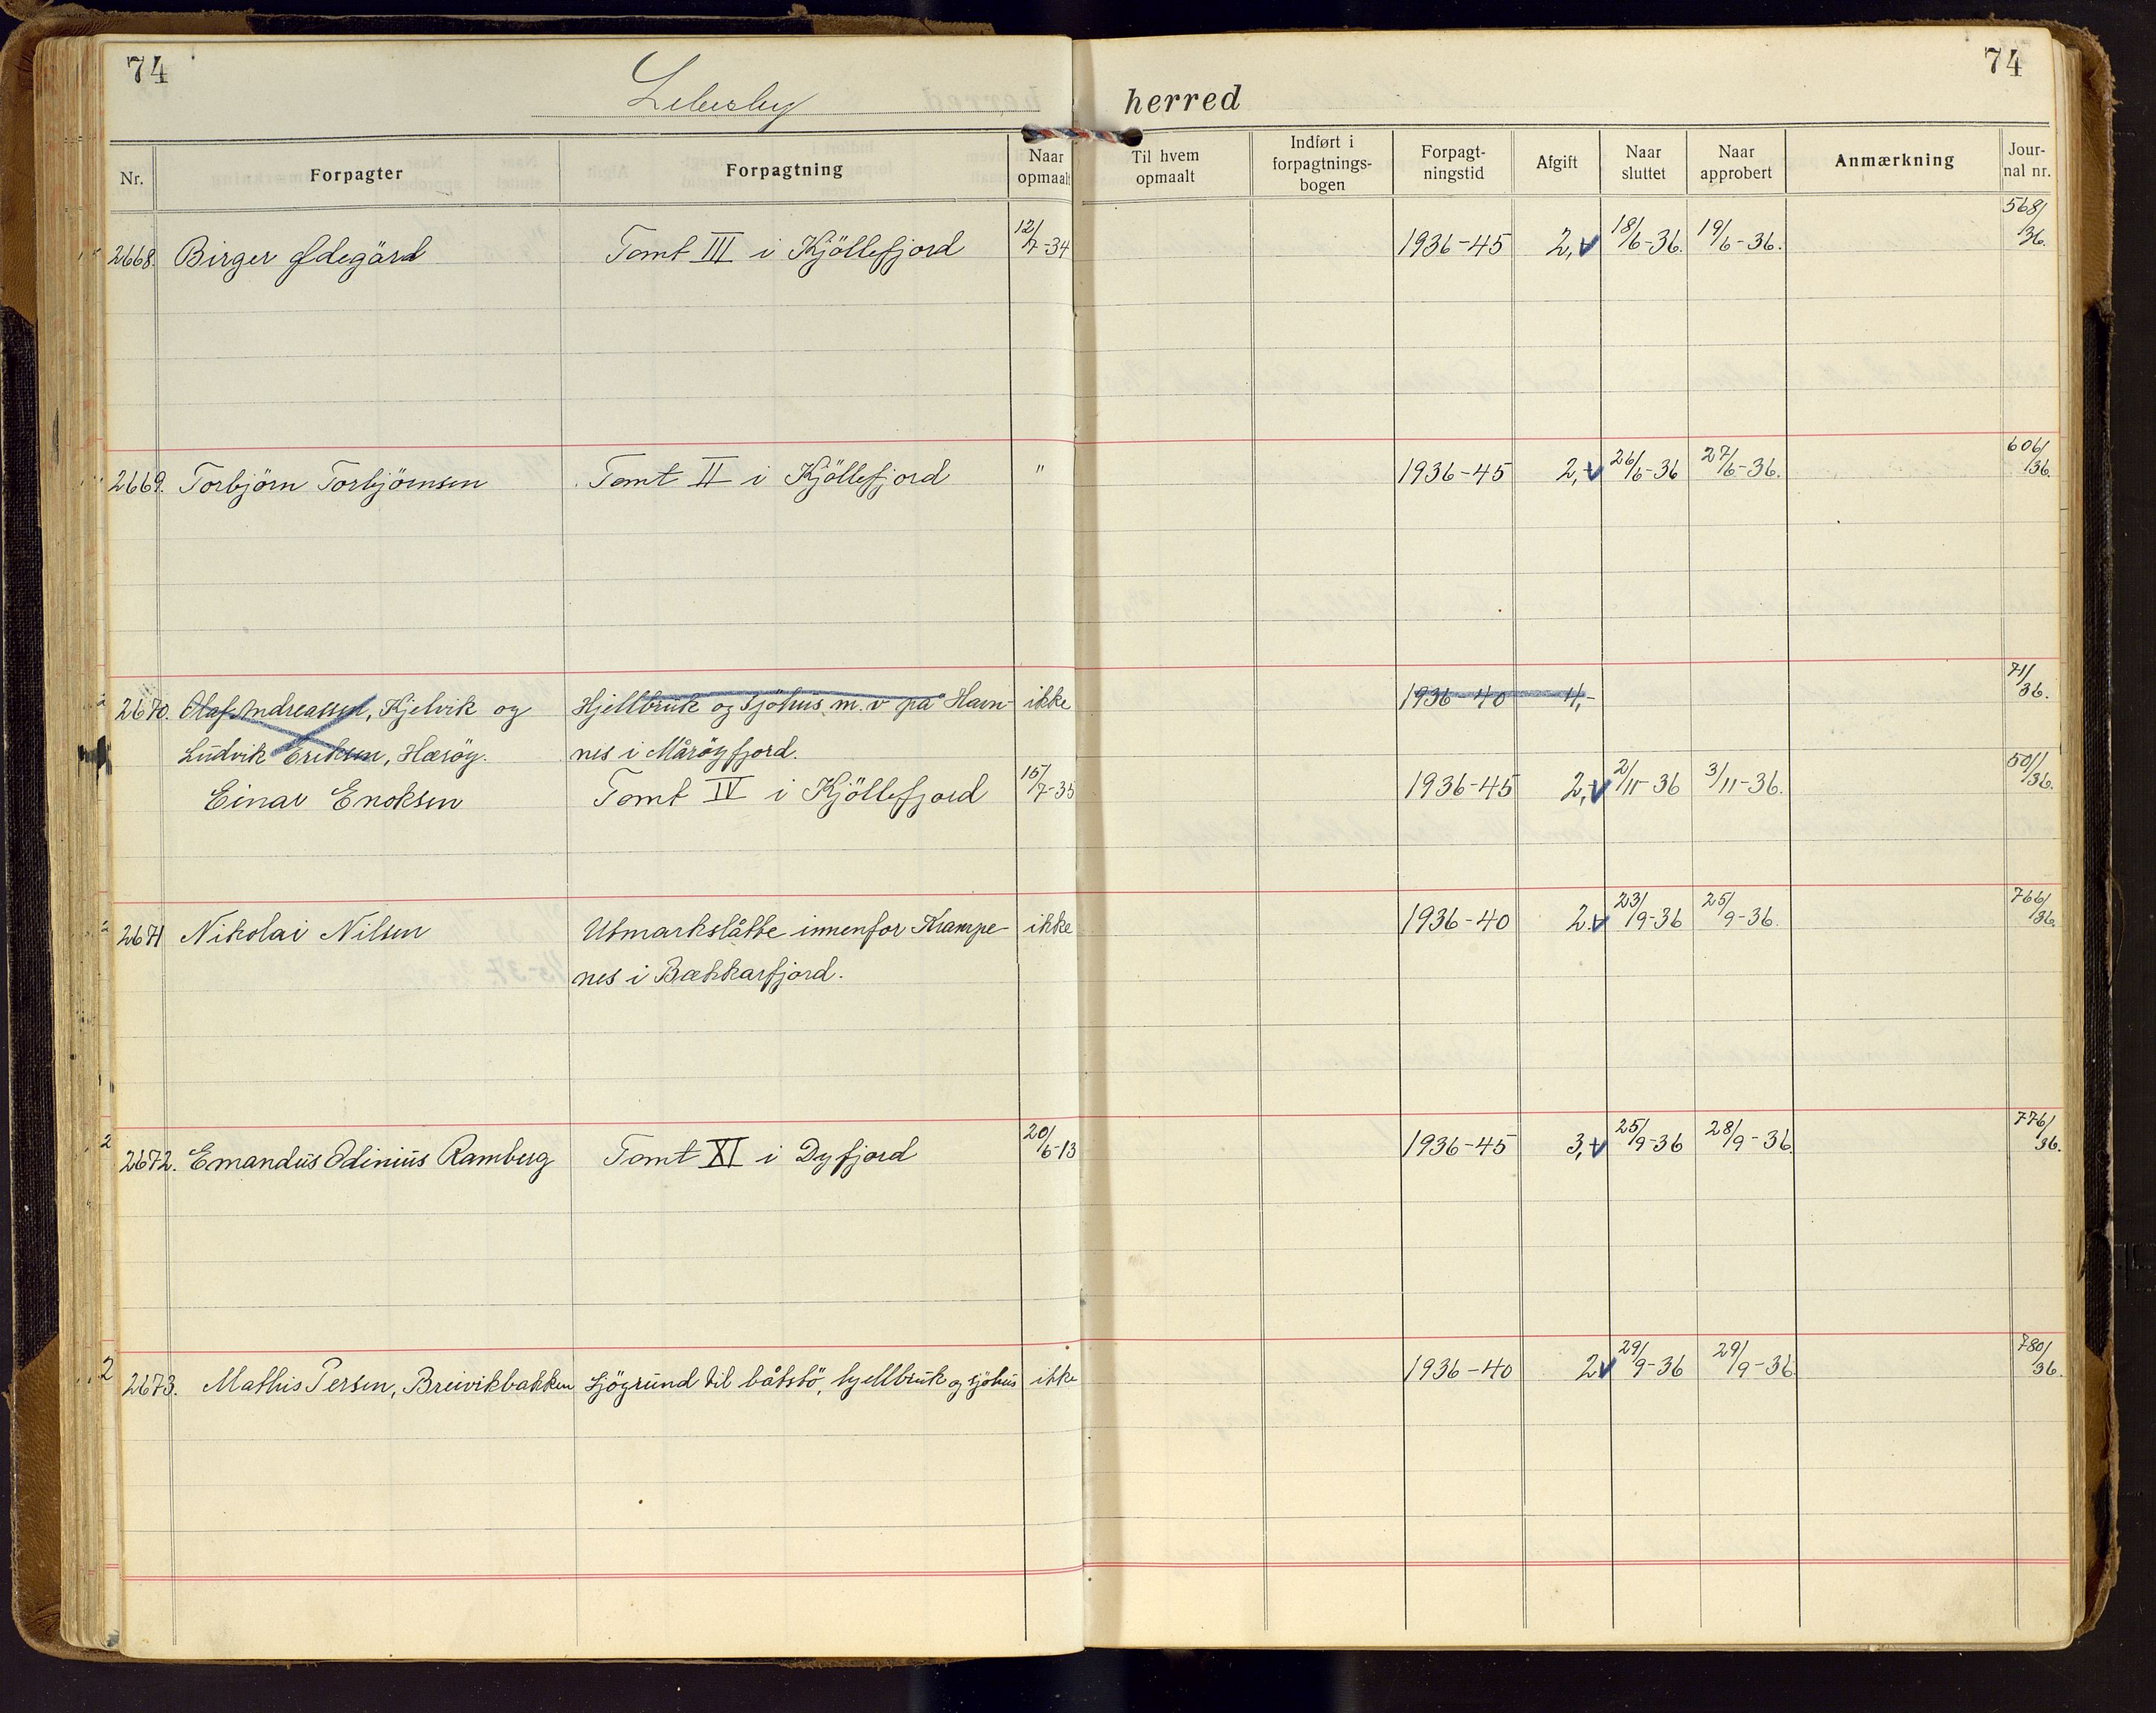 74
Lebesby herred
74
Nr. Forpagter Forpagtning Naar opmaalt Til hvem opmaalt Indført i forpagtnings-bogen Forpagt-ningstid Afgift Naar sluttet Naar approbert Anmærkning Jour-nal nr.
2668. Birger Ødegård Tomt III i Kjöllefjord 12/7-34 1936-45 2,- 18/6-36. 19/6-36. 568/36.
2669. Torbjörn Torbjörnsen Tomt II i Kjöllefjord " 1936-45 2,- 26/6-36 27/6-36. 606/36.
2670. Olaf Andreassen, Kjelvik og Hjellbruk og sjöhus m.v. på Havn- ikke 1936-40 4,- 71/36.
Ludvik Eriksen, Hærøy. nes i Måröyfjord.
Einar Enoksen Tomt IV i Kjöllefjord 15/7-35 1936-45 2,- 2/11-36 3/11-36. 501/36.
2671 Nikolai Nilsen Utmarkslåtte innenfor Krampe- ikke 1936-40 2.- 23/9-36 25/9-36. 766/36.
nes i Bækkarfjord.
2672. Emandus Odinius Ramberg Tomt XI i Dyfjord 20/6-13 1936-45 3,- 25/9-36 28/9-36. 776/36.
2673. Mathis Persen, Breivikbakken Sjögrund til båtstö, hjellbruk og sjöhus ikke 1936-40 2 29/9-36 29/9-36. 780/36.